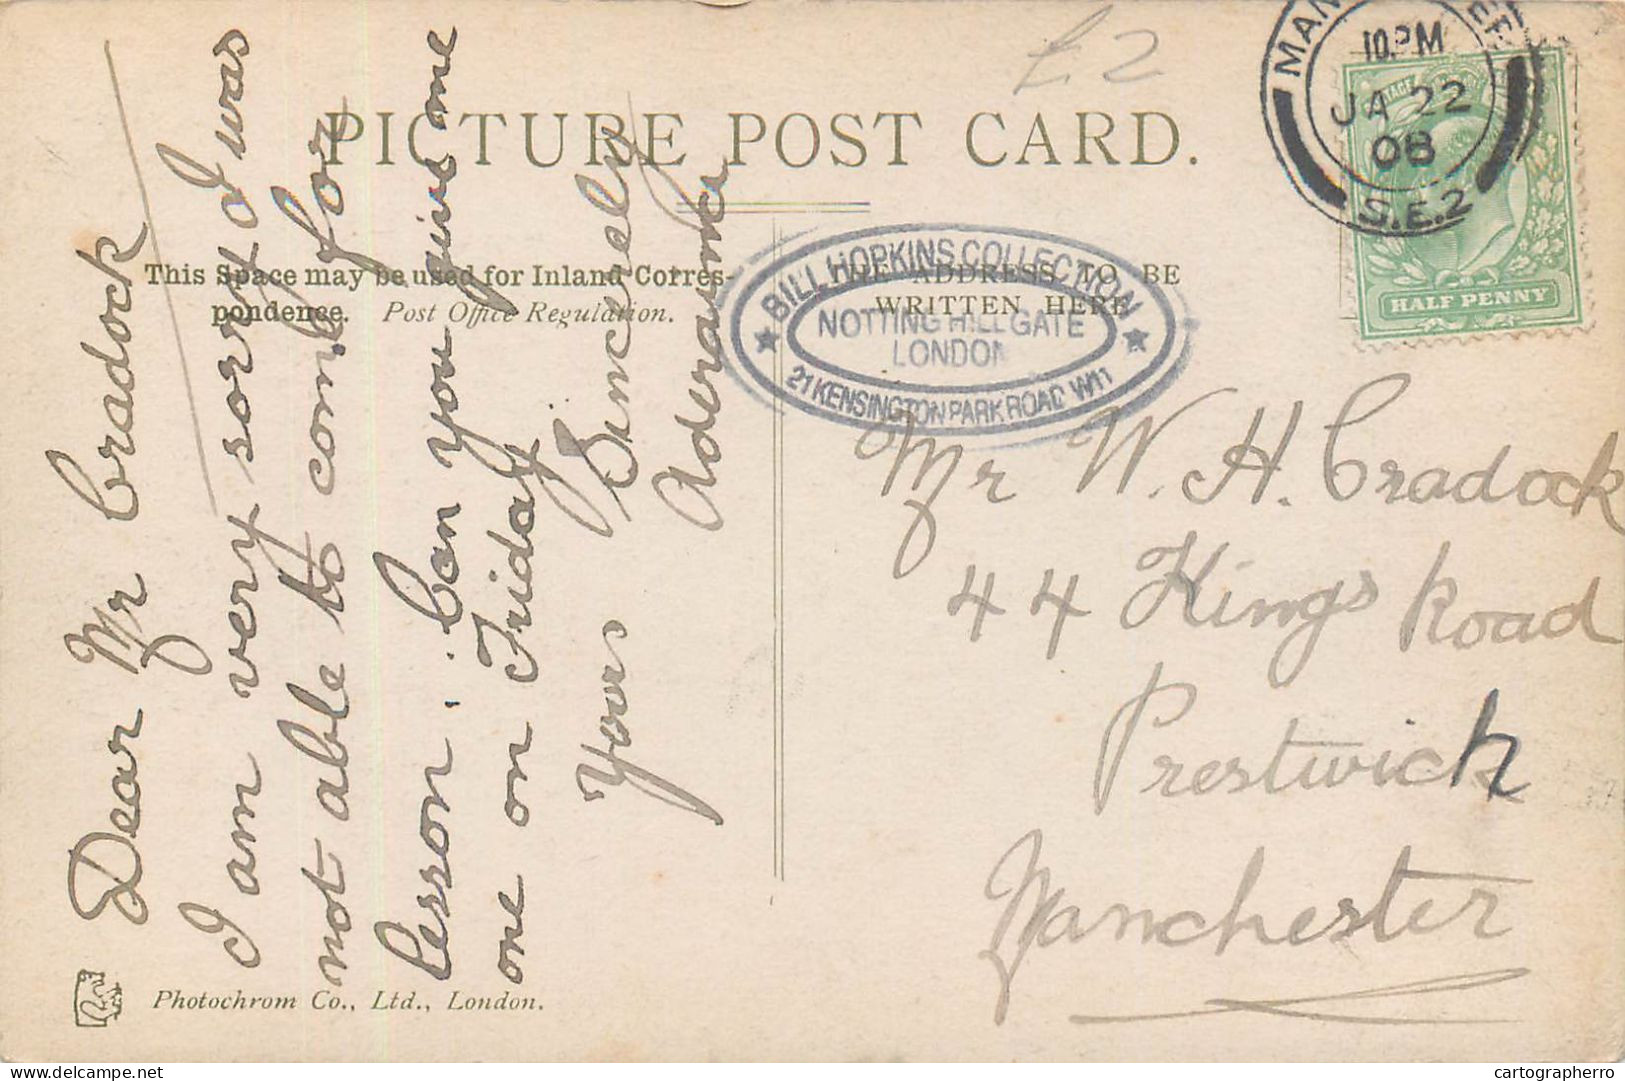 £.2
PICTURE POST CARD.
This Space may be used for Inland Corres-
pondence. Post Office Regulation.
THE ADDRESS TO BE
WRITTEN HERE
10.PM
JA 22
08
S.E.2
HALF PENNY
BILL HOPKINS COLLECTION
NOTTING HILL GATE
LONDON
21 KENSINGTON PARK ROAD W11
Dear Mr Cradock
I am very sorry I was
not able to come for
lesson. Can you give me
one on Friday
Yours Sincerely
Mr W. H. Cradock
44 Kings Road
Prestwich
Manchester
Photochrom Co., Ltd., London.
delcampe.net
cartographerro